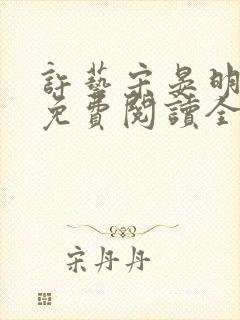 許藝宋晏明
免費閱讀全
宋丹丹